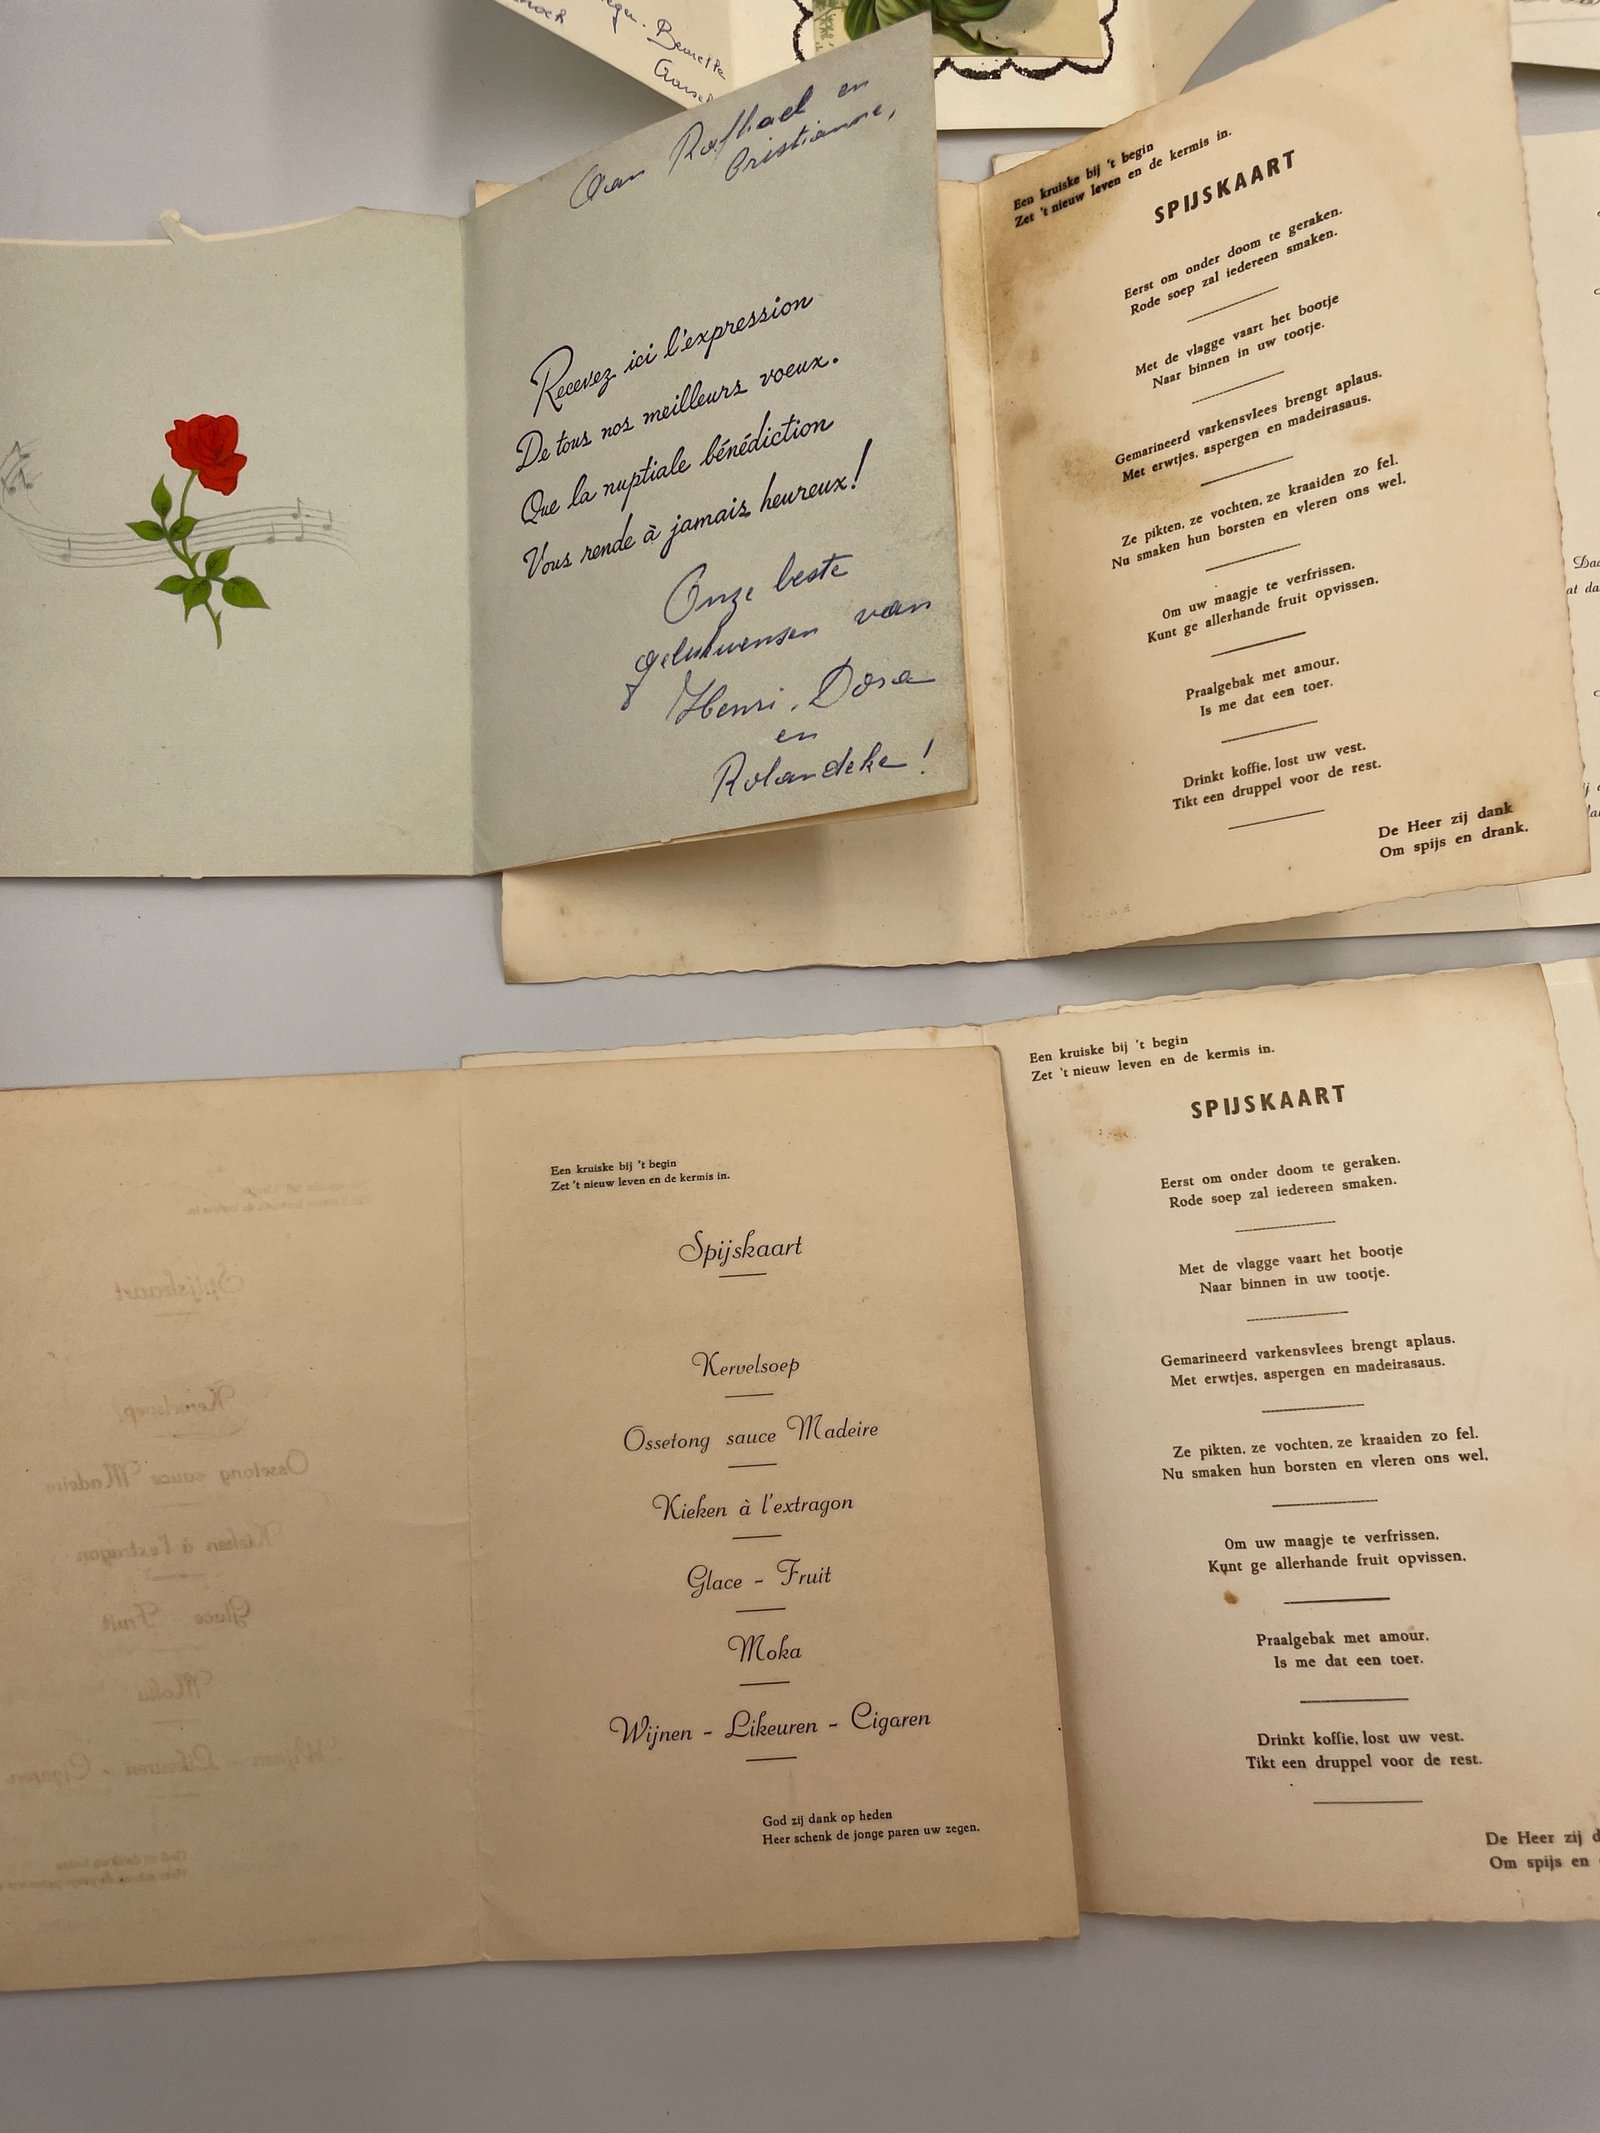 Aan Rafhael en
Cristianne,
Recevez ici l'expression
De tous nos meilleurs voeux.
Que la nuptiale bénédiction
Vous rende à jamais heureux!
Onze beste
gelukwensen van
Henri, Dora
en
Rolandeke!
Een kruiske bij 't begin
Zet 't nieuw leven en de kermis in.
SPIJSKAART
Eerst om onder doom te geraken.
Rode soep zal iedereen smaken.
Met de vlagge vaart het bootje
Naar binnen in uw tootje.
Gemarineerd varkensvlees brengt aplaus.
Met erwtjes, aspergen en madeirasaus.
Ze pikten, ze vochten, ze kraaiden zo fel.
Nu smaken hun borsten en vleren ons wel.
Om uw maagje te verfrissen.
Kunt ge allerhande fruit opvissen.
Praalgebak met amour.
Is me dat een toer.
Drinkt koffie, lost uw vest.
Tikt een druppel voor de rest.
De Heer zij dank
Om spijs en drank.
Een kruiske bij 't begin
Zet 't nieuw leven en de kermis in.
Spijskaart
Kervelsoep
Ossetong sauce Madeire
Kieken à l'extragon
Glace - Fruit
Moka
Wijnen - Likeuren - Cigaren
God zij dank op heden
Heer schenk de jonge paren uw zegen.
Een kruiske bij 't begin
Zet 't nieuw leven en de kermis in.
SPIJSKAART
Eerst om onder doom te geraken.
Rode soep zal iedereen smaken.
Met de vlagge vaart het bootje
Naar binnen in uw tootje.
Gemarineerd varkensvlees brengt aplaus.
Met erwtjes, aspergen en madeirasaus.
Ze pikten, ze vochten, ze kraaiden zo fel.
Nu smaken hun borsten en vleren ons wel.
Om uw maagje te verfrissen.
Kunt ge allerhande fruit opvissen.
Praalgebak met amour.
Is me dat een toer.
Drinkt koffie, lost uw vest.
Tikt een druppel voor de rest.
De Heer zij
Om spijs en